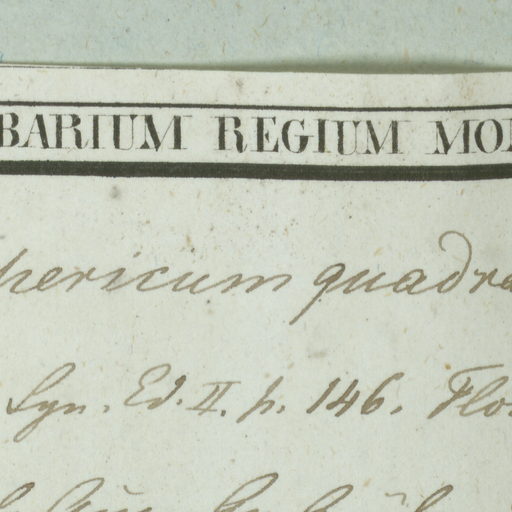 BARIUM REGIUM MO
pericum quadra
Syn. Ed. II. p. 146. Flo